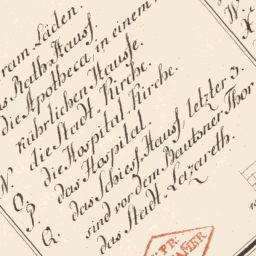 ram Läden.
s Rath Hauß.
die Apotheca, in einem
kührlichen Hauße.
die Stadt Kirche.
die Hospital Kirche.
N. das Hospital
O. das Schieß Hauß, letzter 3.
P. sind vor dem Bautzner Thor
Q. das Stadt Lazareth.
W.